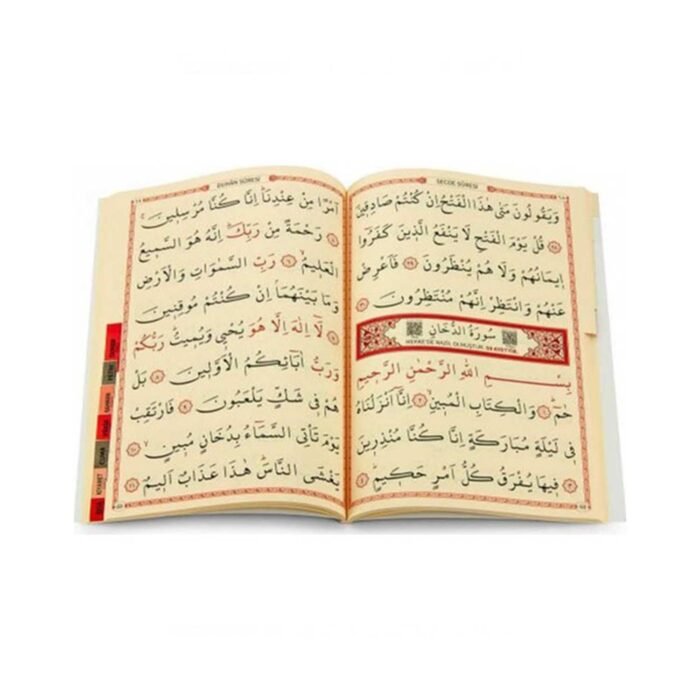 SECDE SÛRESİ
وَيَقُولُونَ مَتٰى هٰذَا الْفَتْحُ اِنْ كُنْتُمْ صَادِقِينَ
﴿٢٨﴾ قُلْ يَوْمَ الْفَتْحِ لَا يَنْفَعُ الَّذِينَ كَفَرُٓوا
اِيمَانُهُمْ وَلَا هُمْ يُنْظَرُونَ ﴿٢٩﴾ فَاَعْرِضْ
عَنْهُمْ وَانْتَظِرْ اِنَّهُمْ مُنْتَظِرُونَ ﴿٣٠﴾
سُورَةُ الدُّخَانِ
MEKKE'DE NAZİL OLMUŞTUR. 59 AYETTİR.
بِسْمِ اللّٰهِ الرَّحْمٰنِ الرَّحِيمِ
حٰمٓ ﴿١﴾ وَالْكِتَابِ الْمُبِينِ ﴿٢﴾ اِنَّٓا اَنْزَلْنَاهُ
فِى لَيْلَةٍ مُبَارَكَةٍ اِنَّا كُنَّا مُنْذِرِينَ
﴿٣﴾ فِيهَا يُفْرَقُ كُلُّ اَمْرٍ حَكِيمٍ ﴿٤﴾
DUHÂN SÛRESİ
اَمْرًا مِنْ عِنْدِنَا اِنَّا كُنَّا مُرْسِلِينَ
﴿٥﴾ رَحْمَةً مِنْ رَبِّكَ اِنَّهُ هُوَ السَّمِيعُ
الْعَلِيمُ ﴿٦﴾ رَبِّ السَّمٰوَاتِ وَالْاَرْضِ
وَمَا بَيْنَهُمَا اِنْ كُنْتُمْ مُوقِنِينَ
﴿٧﴾ لَٓا اِلٰهَ اِلَّا هُوَ يُحْيِى وَيُمِيتُ رَبُّكُمْ
وَرَبُّ اٰبَٓائِكُمُ الْاَوَّلِينَ ﴿٨﴾ بَلْ
هُمْ فِى شَكٍّ يَلْعَبُونَ ﴿٩﴾ فَارْتَقِبْ
يَوْمَ تَاْتِى السَّمَٓاءُ بِدُخَانٍ مُبِينٍ ﴿١٠﴾
يَغْشَى النَّاسَ هٰذَا عَذَابٌ اَلِيمٌ ﴿١١﴾